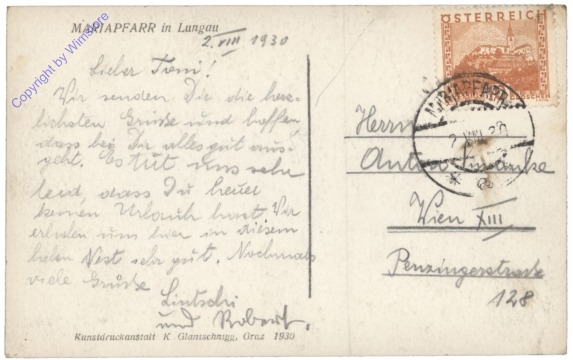 MARIAPFARR in Lungau
2. VIII 1930
Lieber Toni!
Wir senden Dir die herz-
lichsten Grüße und hoffen,
dass bei Dir alles gut aus-
geht. Es tut uns sehr
leid, dass Du heuer
keinen Urlaub hast. Wir
erholen uns hier in diesem
lieben Nest sehr gut. Nochmals
viele Grüße
Lintschi
und Robert.
Kunstdruckanstalt K Glantschnigg, Graz 1930
ÖSTERREICH
MARIAPFARR
2. VIII. 30
Herrn
Anton
Wien XIII
Penzingerstraße
128
Copyright by Wimstore